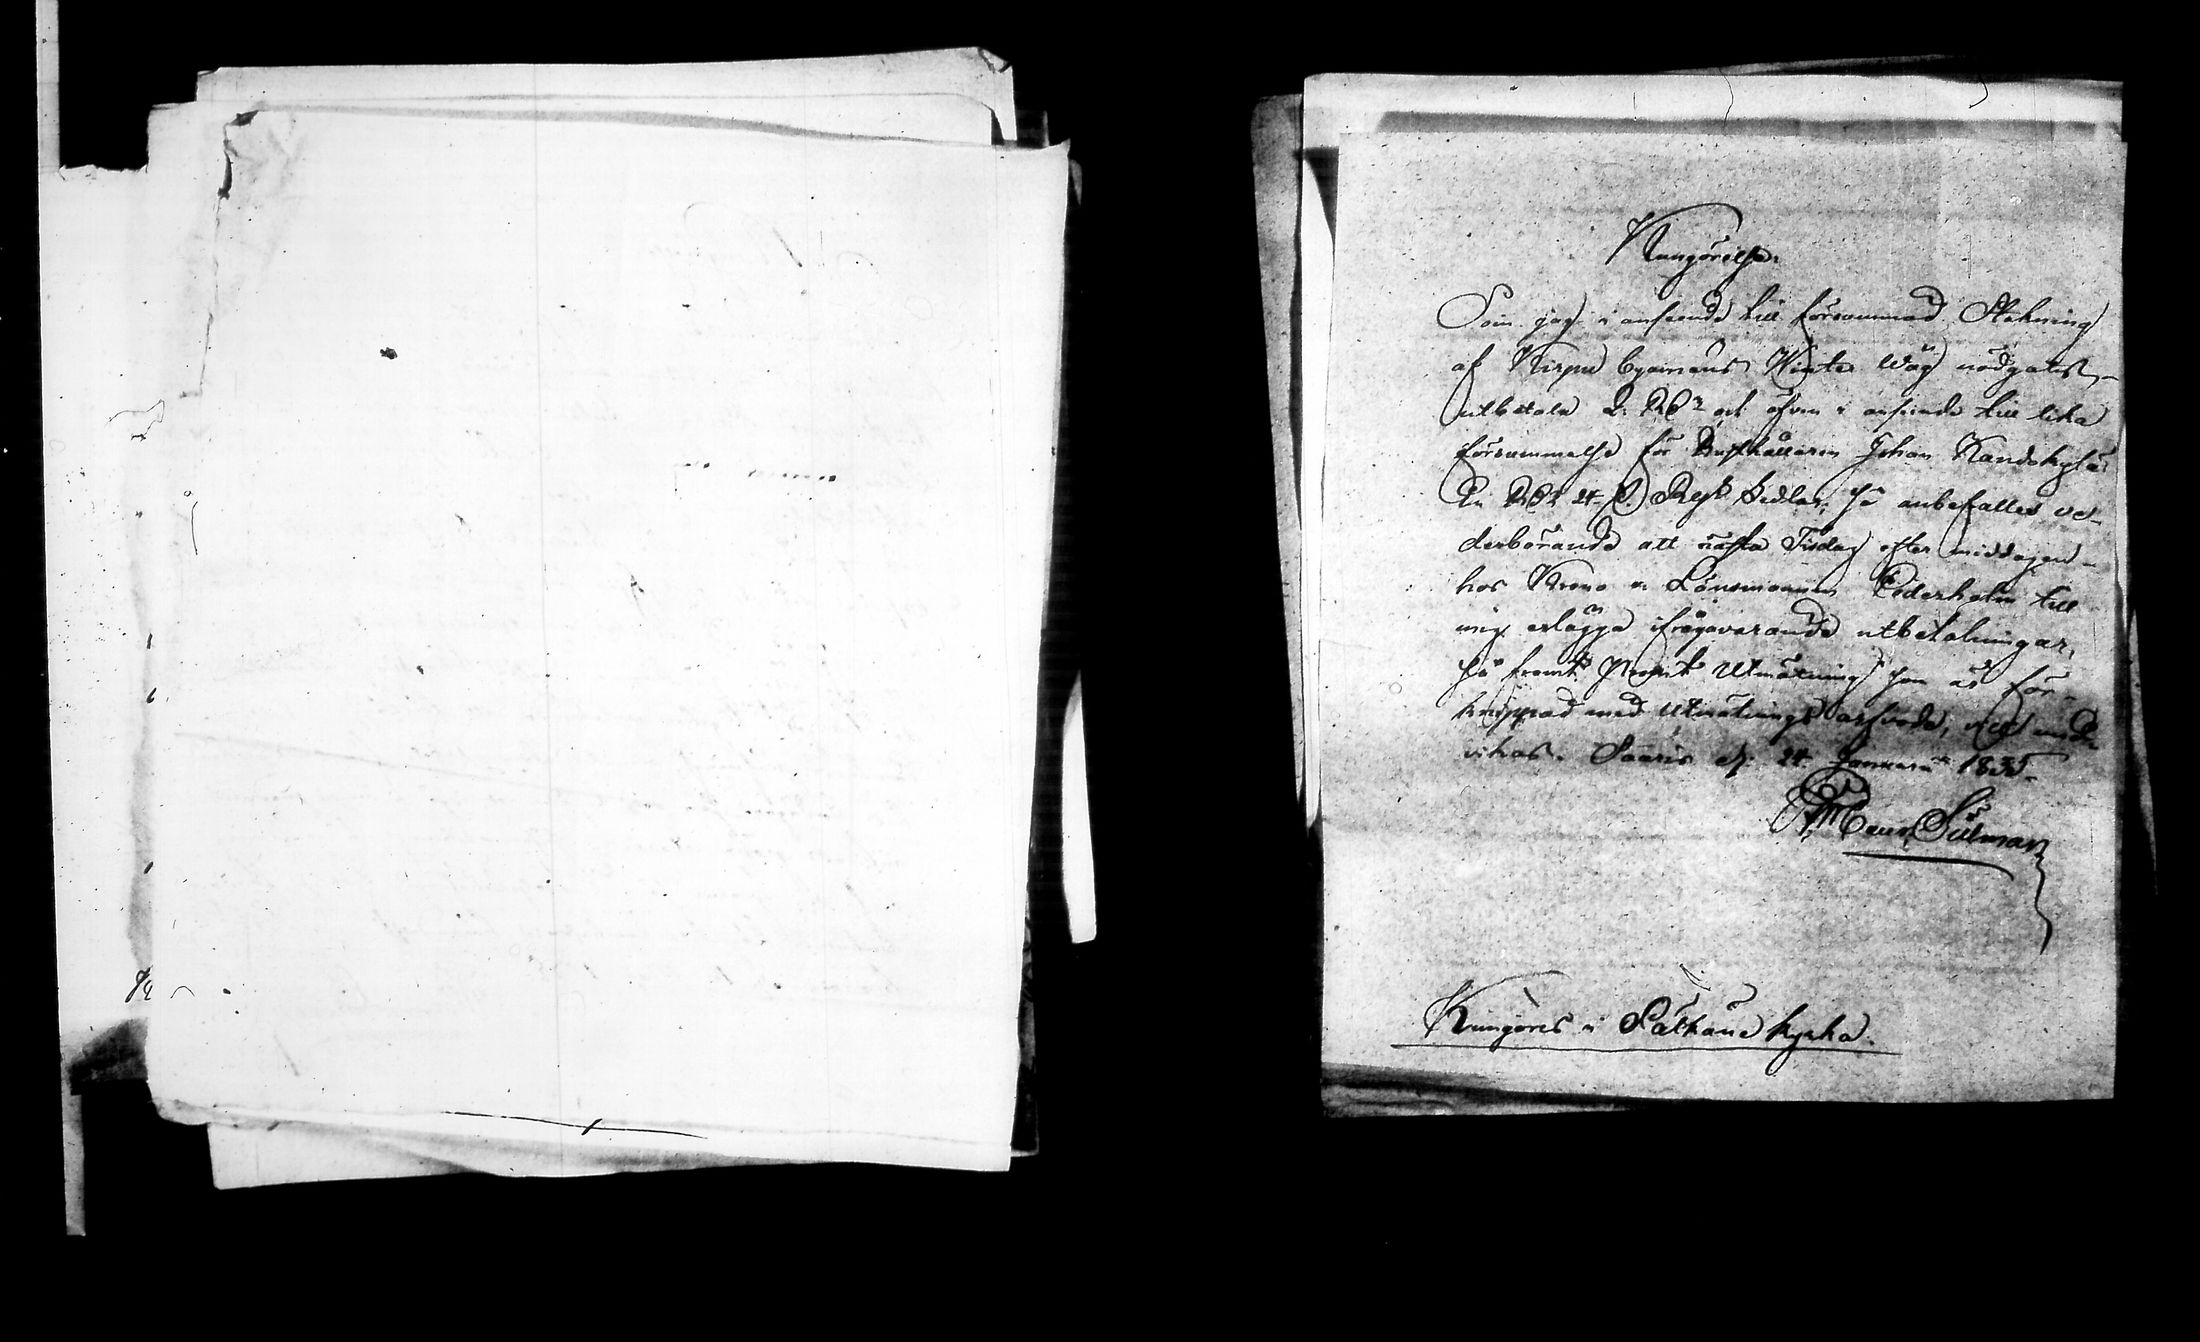 Kungörelse.
Som jag i anseende till försummad Stakning
af Kirpu byamäns Winter Wäg nödgats
utbetala 2 Rd och äfven i anseende till lika
försummelse för Rusthållaren Johan Kandokylä
24 Rysk Sedlar; så anbefalles ve-
derbörande att nästa Tisdag efter middagen
hos Krono Länsmannen Cederholm till
mig erlägga ifrågavarande utbetalningar,
så framt Utmätning som är för-
knippad med Utmätnings arfvode, vill und-
vikas. Saaris d. 24 Januarii 1835.
Sülman
Kungöres i Pälkäne kyrka.